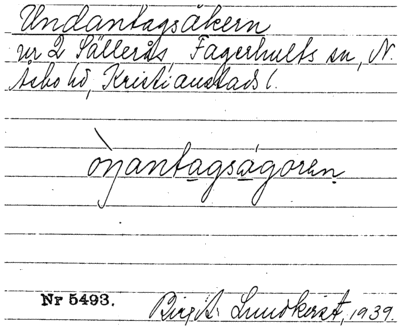 Undantagsåkern
nr 2 Sällerås, Fagerhults sn, N.
Åsbo hd, Kristianstads l.
òŋantagságoren
Nr 5493.
Birgit Lundkvist, 1939.